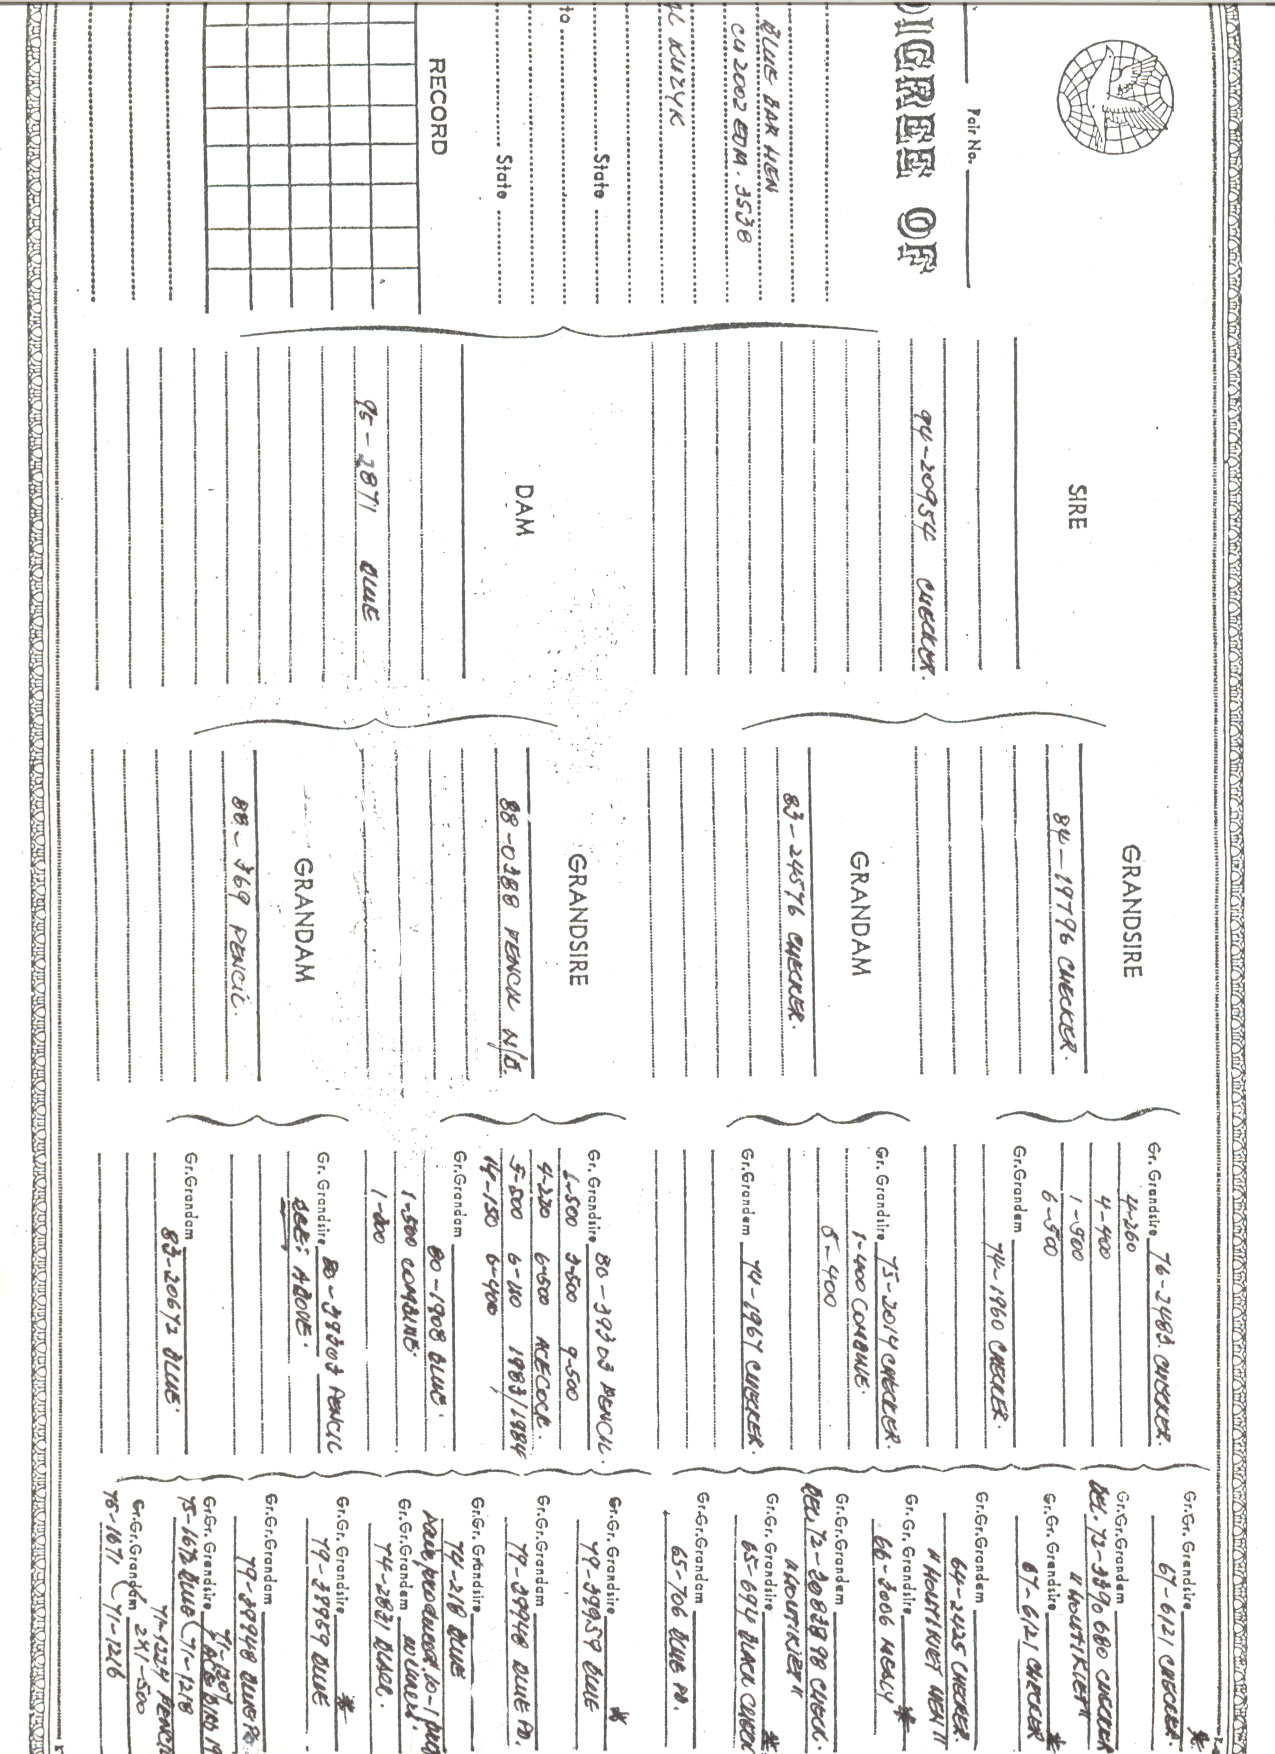 DIGREE OF
Pair No.
BLUE BAR HEN
CU 2002 EDM. 3538
KUZYK
State
State
RECORD
SIRE
94-20954 CHECKER.
DAM
95-2871 BLUE
GRANDSIRE
84-19796 CHECKER.
GRANDAM
83-24576 CHECKER.
GRANDSIRE
88-0388 PENCIL N/B.
GRANDAM
88-369 PENCIL.
Gr. Grandsire 76-2483. CHECKER.
4-260
4-400
1-500
6-500
Gr. Grandam 74-1960 CHECKER.
Gr. Grandsire 75-2014 CHECKER.
1-400 COMBINE.
5-400
Gr. Grandam 74-1967 CHECKER.
Gr. Grandsire 80-39303 PENCIL.
1-500 3-500 9-500
4-200 6-500 ACE COCK.
5-500 6-110 1983/1984
14-150 6-400
Gr. Grandam 80-1908 BLUE.
1-500 COMBINE.
1-200
Gr. Grandsire 80-39303 PENCIL
SEE: ABOVE.
Gr. Grandam 83-20672 BLUE.
Gr.Gr. Grandsire *
67-6121 CHECKER.
Gr.Gr.Grandam
BEL. 72-3390680 CHECKER
"HOUTKIET"
Gr.Gr. Grandsire *
67-6121 CHECKER
Gr.Gr.Grandam
64-2425 CHECKER.
"HOUTKIET HEN"
Gr.Gr. Grandsire *
66-3006 MEALY
Gr.Gr.Grandam
BEL 72-3083898 CHECK.
"HOUTKIET"
Gr.Gr. Grandsire *
65-694 BLACK CHECK
Gr.Gr.Grandam
65-706 BLUE PD.
Gr.Gr. Grandsire *
79-39959 BLUE
Gr.Gr.Grandam
79-39948 BLUE PD.
Gr.Gr. Grandsire
74-218 BLUE
produced 10-1
Gr.Gr.Grandam winners.
74-2831 BLACK.
Gr.Gr. Grandsire *
79-39959 BLUE
Gr.Gr.Grandam
79-39948 BLUE PD.
Gr.Gr. Grandsire 71-1207
75-1672 BLUE (71-1218
71-1224 PENCIL
Gr.Gr.Grandam 2X1-500
75-1671 (71-1216